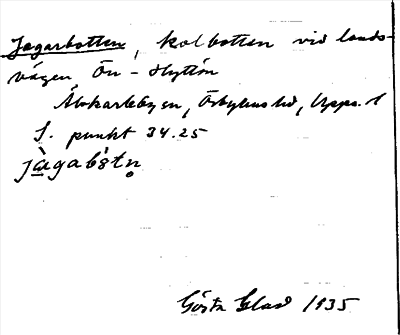 Jagarbotten, kolbotten vid lands-
vägen Ön - Hyttön
Älvkarlebysn, Örbyhus hd, Upps. l
S. punkt 34.25
jàgabòtn̥
Gösta Glad 1935